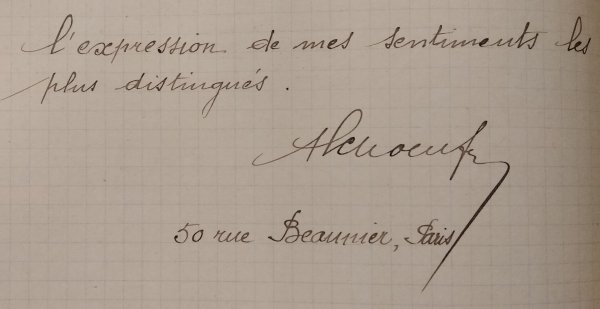 l'expression de mes sentiments les
plus distingués.
50 rue Beaunier, Paris